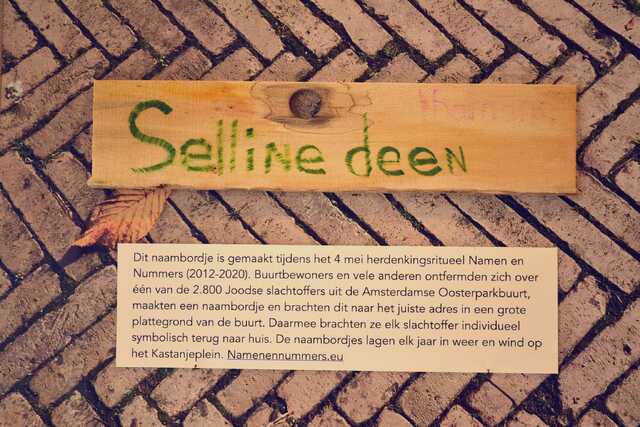 Selline deen
Dit naambordje is gemaakt tijdens het 4 mei herdenkingsritueel Namen en
Nummers (2012-2020). Buurtbewoners en vele anderen ontfermden zich over
één van de 2.800 Joodse slachtoffers uit de Amsterdamse Oosterparkbuurt,
maakten een naambordje en brachten dit naar het juiste adres in een grote
plattegrond van de buurt. Daarmee brachten ze elk slachtoffer individueel
symbolisch terug naar huis. De naambordjes lagen elk jaar in weer en wind op
het Kastanjeplein. Namenennummers.eu